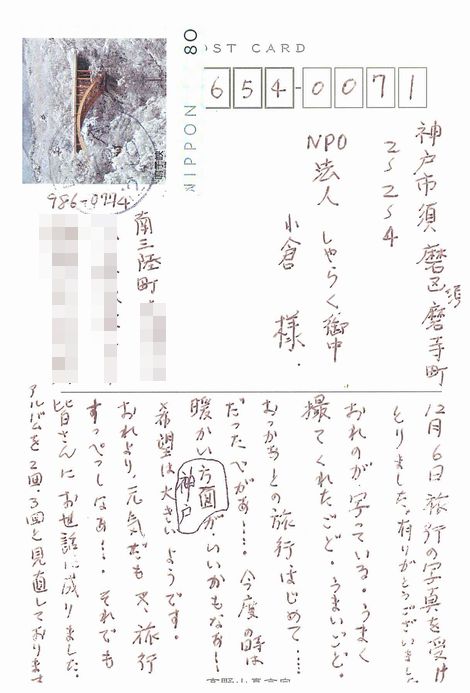 POST CARD
NIPPON 80
654-0071
神戸市須磨区須磨寺町
2-5-4
NPO法人 しゃらく御中
小倉 様
986-0774
南三陸町
12月6日旅行の写真を受け
とりました。有りがとうございました
おれのが写っている。うまく
撮てくれたごど。うまいごど。
おっかあとの旅行はじめて……
だったべがぁ……。今度の時は
暖かい方面が、いいかもなぁー
神戸
希望は大きいようです。
おれより元気だもや、旅行
すっぺっしなぁー…。それでも
皆さんにお世話に成りました。
アルバムを2回・3回と見直しております